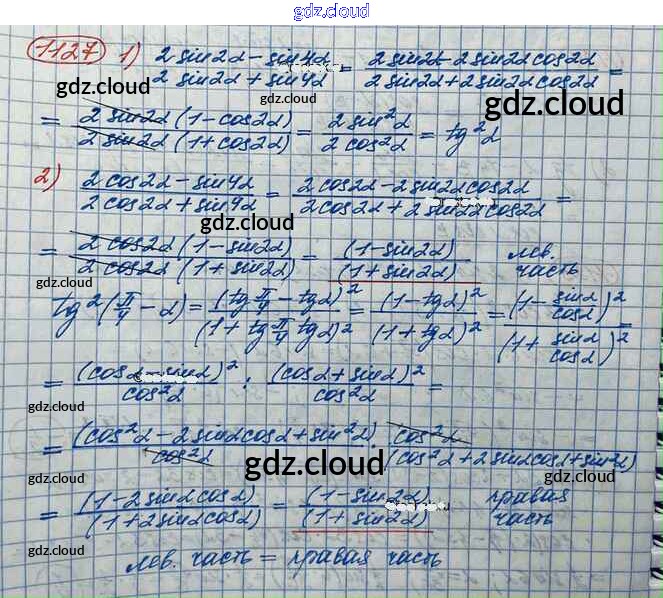 gdz.cloud
1127 1) (2 sin2α - sin4α)/(2 sin2α + sin4α) = (2 sin2α - 2 sin2α cos2α)/(2 sin2α + 2 sin2α cos2α) =
gdz.cloud gdz.cloud gdz.cloud
= (2 sin2α (1 - cos2α))/(2 sin2α (1 + cos2α)) = (2 sin²α)/(2 cos²α) = tg²α
2) (2 cos2α - sin4α)/(2 cos2α + sin4α) = (2 cos2α - 2 sin2α cos2α)/(2 cos2α + 2 sin2α cos2α) =
gdz.cloud
= (2 cos2α (1 - sin2α))/(2 cos2α (1 + sin2α)) = (1 - sin2α)/(1 + sin2α) лев. часть
gdz.cloud
tg²(π/4 - α) = (tg π/4 - tgα)²/(1 + tg π/4 tgα)² = (1 - tgα)²/(1 + tgα)² = (1 - sinα/cosα)²/(1 + sinα/cosα)² =
= (cosα - sinα)²/cos²α : (cosα + sinα)²/cos²α =
gdz.cloud gdz.cloud
= (cos²α - 2 sinα cosα + sin²α)/cos²α · cos²α/(cos²α + 2 sinα cosα + sin²α)
gdz.cloud gdz.cloud
= (1 - 2 sinα cosα)/(1 + 2 sinα cosα) = (1 - sin2α)/(1 + sin2α) правая часть
gdz.cloud
лев. часть = правая часть